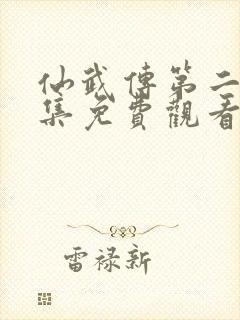 仙武傳第二
集免費觀看
雷祿新